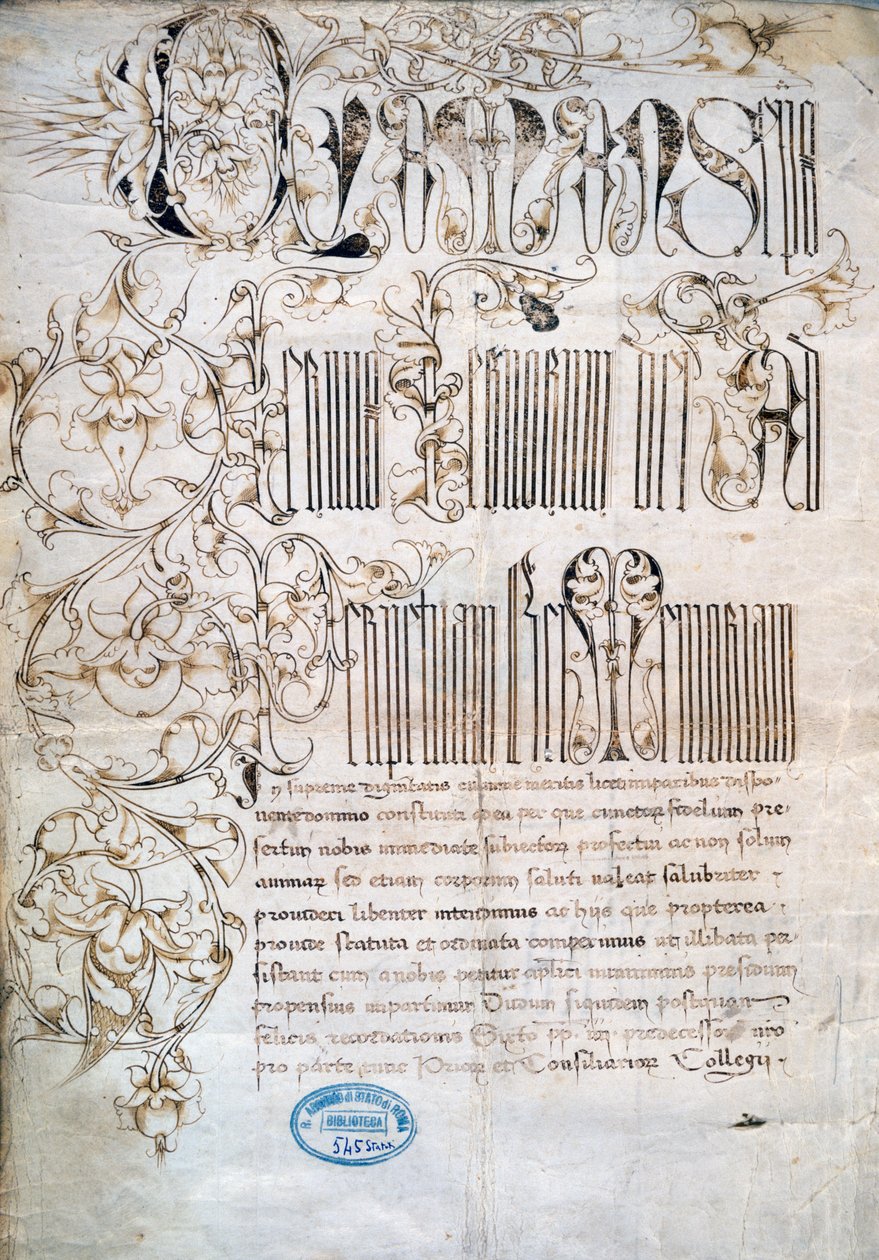 CLEMENS eps
Servus Servorum dei Ad
Perpetuam Rei Memoriam
In supreme dignitatis culmine meritis licet imparibus dispo-
nente domino constituti ad ea per que cunctoꝝ fidelium pre-
sertim nobis immediate subiectoꝝ profectui ac non solum
animaꝝ sed etiam corporum saluti valeat salubriter
provideri libenter intendimus ac hijs que propterea
provide statuta et ordinata comperimus ut illibata per-
sistant cum a nobis petitur aplici muniminis presidium
propensius impartimur Dudum siquidem postquam
felicis recordationis Sixto pp. iiij predecessori nro
pro parte tunc Prioꝝ et Consiliarioꝝ Collegij
R. ARCHIVIO di STATO di ROMA
BIBLIOTECA
545 Statuti